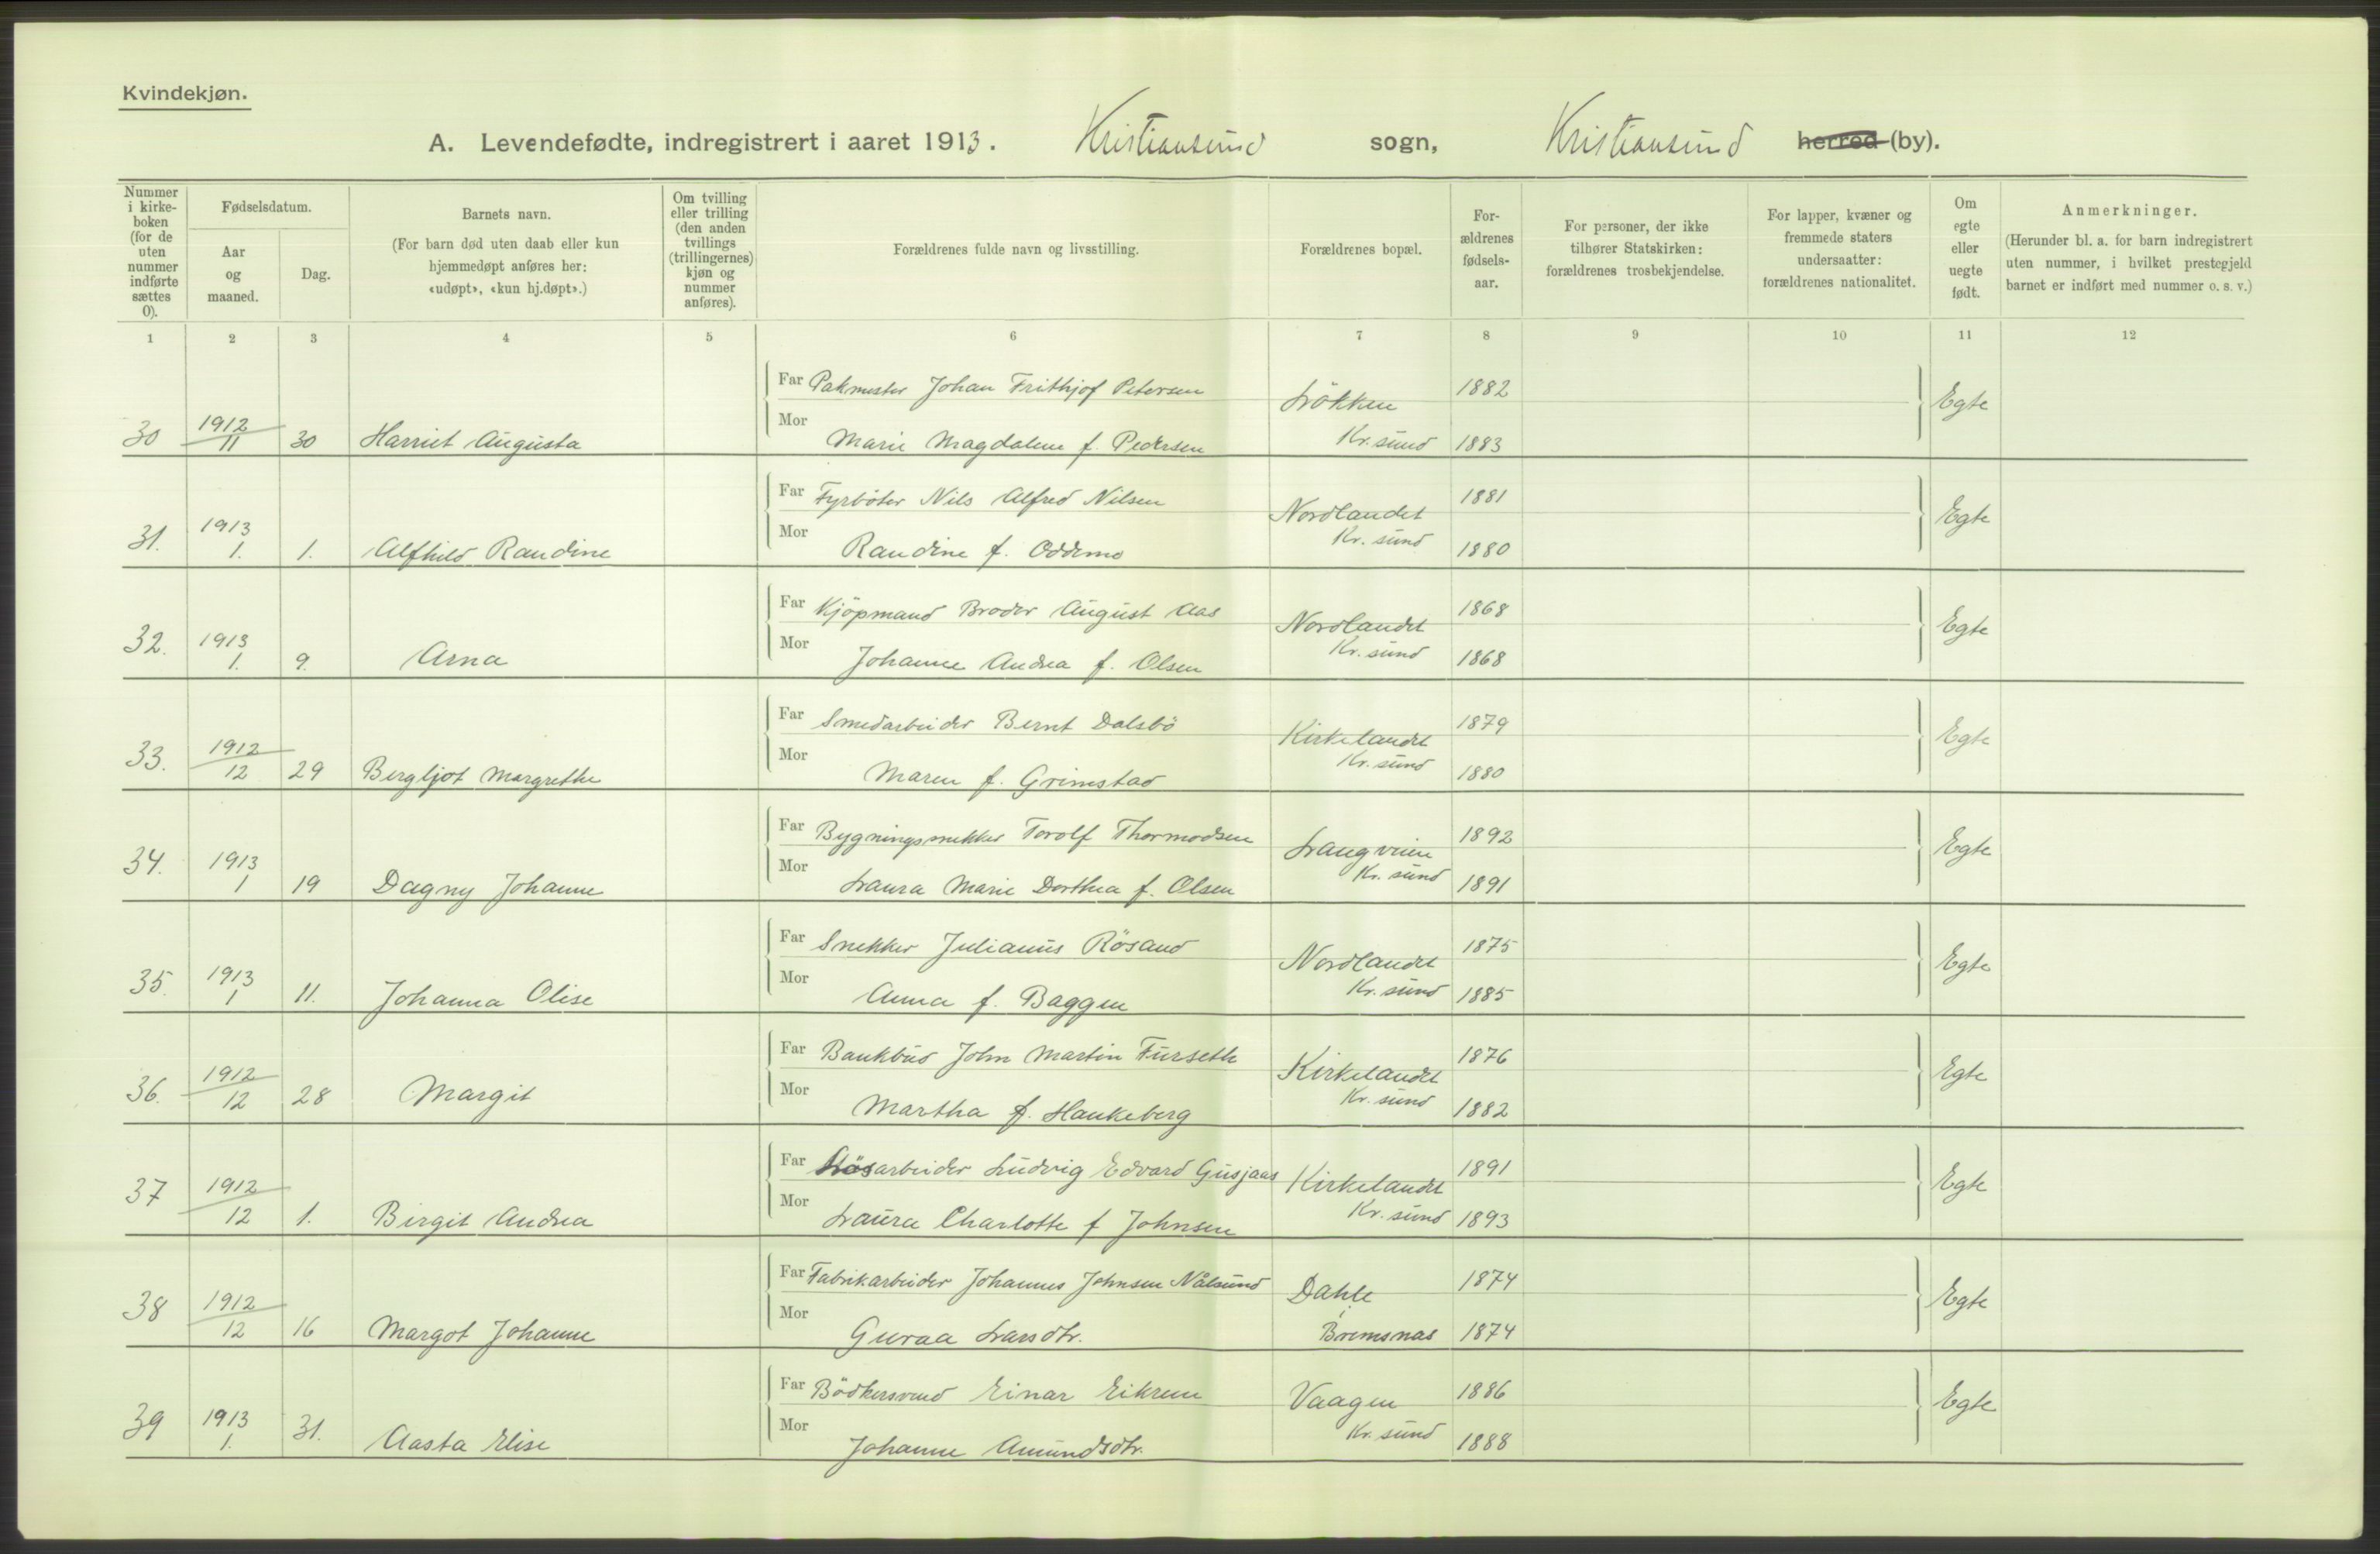 Kvindekjøn.
A. Levendefødte, indregistrert i aaret 1913. Kristiansund sogn, Kristiansund herred (by).
Nummer i kirkeboken (for de uten nummer indførte sættes 0).
Fødselsdatum.
Aar og maaned.
Dag.
Barnets navn.
(For barn død uten daab eller kun hjemmedøpt anføres her: «udøpt», «kun hj.døpt».)
Om tvilling eller trilling (den anden tvillings (trillingernes) kjøn og nummer anføres).
Forældrenes fulde navn og livsstilling.
Forældrenes bopæl.
Forældrenes fødselsaar.
For personer, der ikke tilhører Statskirken: forældrenes trosbekjendelse.
For lapper, kvæner og fremmede staters undersaatter: forældrenes nationalitet.
Om egte eller uegte født.
Anmerkninger.
(Herunder bl. a. for barn indregistrert uten nummer, i hvilket prestegjeld barnet er indført med nummer o. s. v.)
1 2 3 4 5 6 7 8 9 10 11 12
Far Pakmester Johan Frithjof Petersen Løkken 1882 Egte
30 1912 11 30 Harriet Augusta Mor Marie Magdalene f. Pedersen Kr. sund 1883
Far Fyrbøter Nils Alfred Nilsen Nordlandet 1881 Egte
31. 1913 1. 1. Alfhild Randine Mor Randine f. Oddemo Kr. sund 1880
Far Kjøpmand Broder August Aas Nordlandet 1868 Egte
32. 1913 1. 9. Arna Mor Johanne Andrea f. Olsen Kr. sund 1868
Far Smedarbeider Bernt Dalsbø Kirkelandet 1879 Egte
33. 1912 12 29 Bergljot Margrethe Mor Maren f. Grimstad Kr. sund 1880
Far Bygningssnekker Torolf Thormodsen Langveien 1892 Egte
34. 1913 1 19 Dagny Johanne Mor Laura Marie Dorthea f. Olsen Kr. sund 1891
Far Snekker Julianus Røsand Nordlandet 1875 Egte
35. 1913 1 11. Johanna Olise Mor Anna f. Baggen Kr. sund 1885
Far Bankbud John Martin Furseth Kirkelandet 1876 Egte
36. 1912 12 28 Margit Mor Martha f. Haukeberg Kr. sund 1882
Far Løsarbeider Ludvig Edvard Gusjaas Kirkelandet 1891 Egte
37 1912 12 1. Birgit Andrea Mor Laura Charlotte f Johnsen Kr. sund 1893
Far Fabrikarbeider Johannes Johnsen Nålsund Dahle 1874 Egte
38 1912 12 16 Margot Johanne Mor Guraa Larsdtr. i Bremsnas 1874
Far Bødkersvend Einar Eikrem Vaagen 1886 Egte
39 1913 1. 31. Aasta Elise Mor Johanne Amundsdtr. Kr. sund 1888